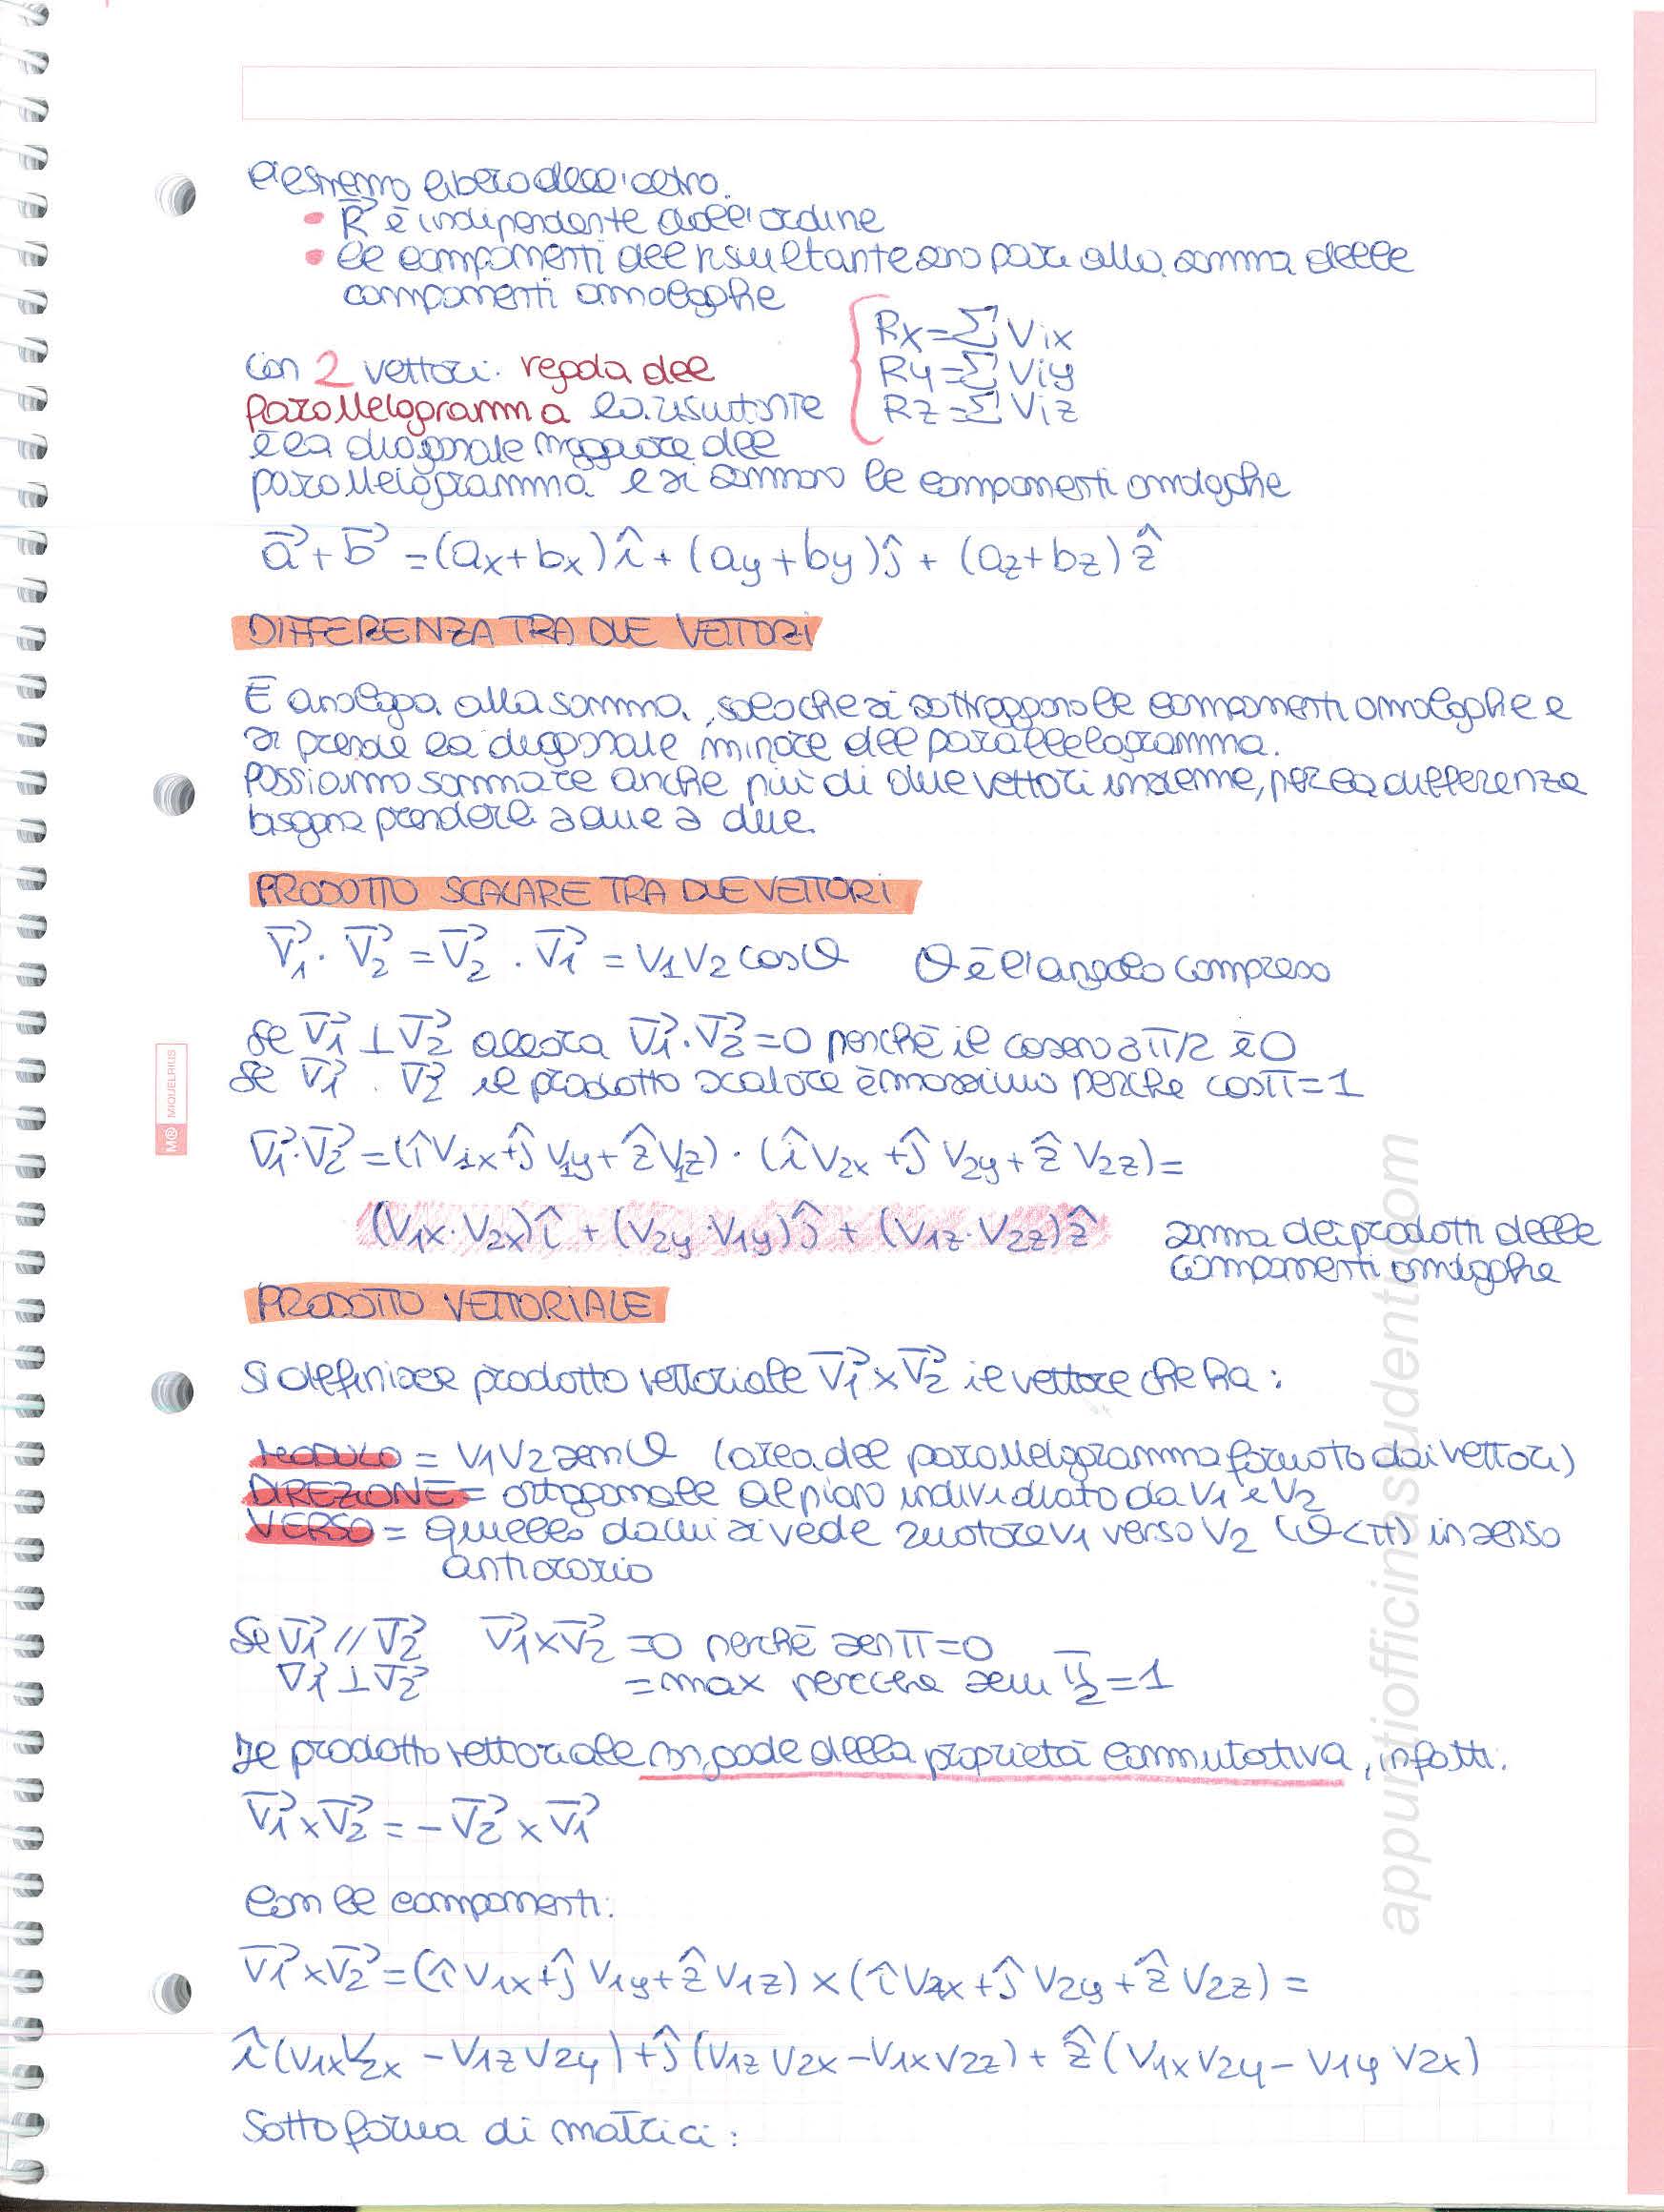 l'estremo libero dell'altro.
• R⃗ è indipendente dall'ordine
• le componenti del risultante sono pari alla somma delle
componenti omologhe
Rx=∑Vix
Ry=∑Viy
Rz=∑Viz
Con 2 vettori: regola del
parallelogramma la risultante
è la diagonale maggiore del
parallelogramma e si sommano le componenti omologhe
a⃗ + b⃗ = (ax+bx)î + (ay+by)ĵ + (az+bz)ẑ
DIFFERENZA TRA DUE VETTORI
È analoga alla somma, solo che si sottraggono le componenti omologhe e
si prende la diagonale minore del parallelogramma.
Possiamo sommare anche più di due vettori insieme, per la differenza
bisogna prenderli a due a due.
PRODOTTO SCALARE TRA DUE VETTORI
V⃗1 · V⃗2 = V⃗2 · V⃗1 = V1V2 cosθ θ è l'angolo compreso
Se V⃗1 ⊥ V⃗2 allora V⃗1·V⃗2=0 perché il coseno a π/2 è 0
Se V⃗1 · V⃗2 il prodotto scalare è massimo perche cosπ=1
V⃗1·V⃗2 = (îV1x+ĵV1y+ẑV1z) · (îV2x+ĵV2y+ẑV2z)=
(V1x·V2x)î + (V2y·V1y)ĵ + (V1z·V2z)ẑ somma dei prodotti delle
componenti omologhe
PRODOTTO VETTORIALE
Si definisce prodotto vettoriale V⃗1×V⃗2 il vettore che ha:
MODULO = V1V2senθ (area del parallelogramma formato dai vettori)
DIREZIONE = ortogonale al piano individuato da V1 e V2
VERSO = quello da cui si vede ruotare V1 verso V2 (θ<π) in senso
antiorario
Se V⃗1 // V⃗2 V⃗1×V⃗2 =0 perché senπ=0
V⃗1⊥V⃗2 =max perche sen π/2=1
Il prodotto vettoriale nn gode della proprietà commutativa, infatti:
V⃗1×V⃗2=-V⃗2×V⃗1
Con le componenti:
V⃗1×V⃗2=(îV1x+ĵV1y+ẑV1z)×(îV2x+ĵV2y+ẑV2z)=
î(V1xV2x-V1zV2y)+ĵ(V1zV2x-V1xV2z)+ẑ(V1xV2y-V1yV2x)
Sotto forma di matrici:
M® MIQUELRIUS
appuntiofficinastudenti.com